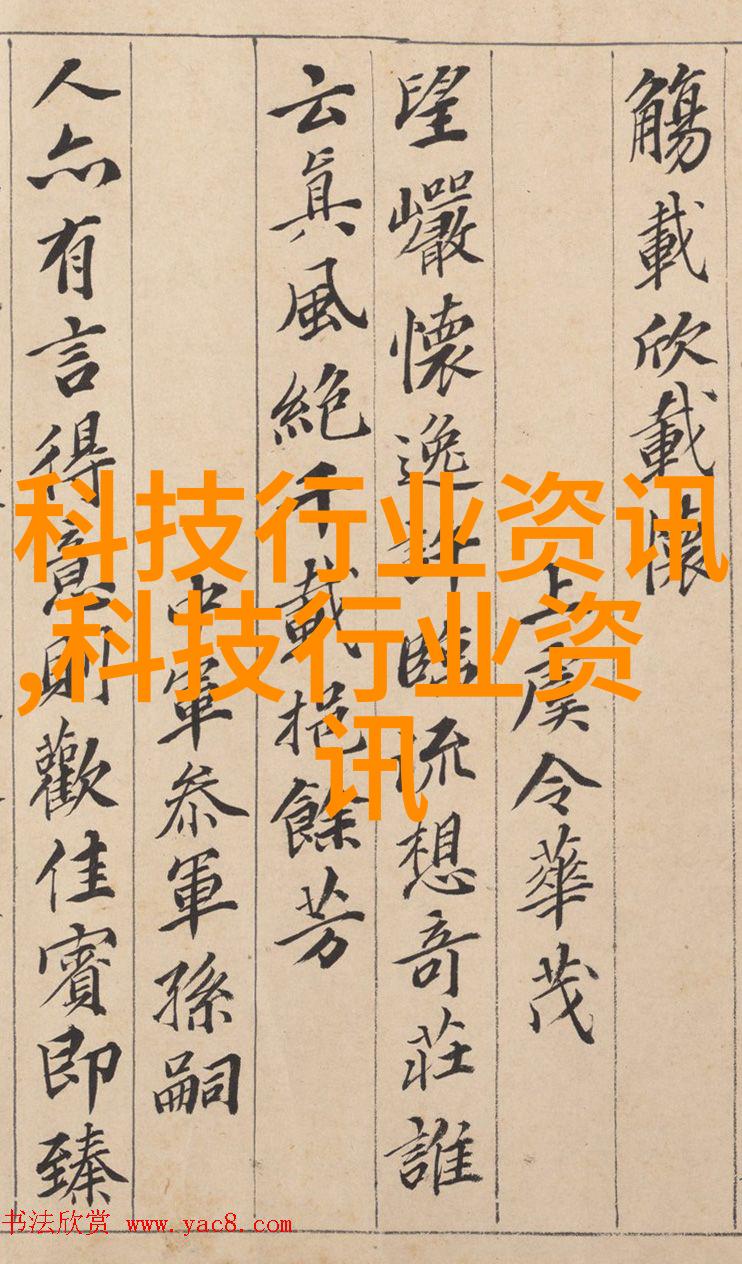 觴載欣載懷
上虞令華茂
望巖懷逸許臨流想奇莊誰
云眞風絕千載挹餘芳
中軍叅軍孫嗣
人亦有言得意則歡佳賓即臻
科技行业资讯
,科技行业资
讯
书法欣赏 www.yac8.com